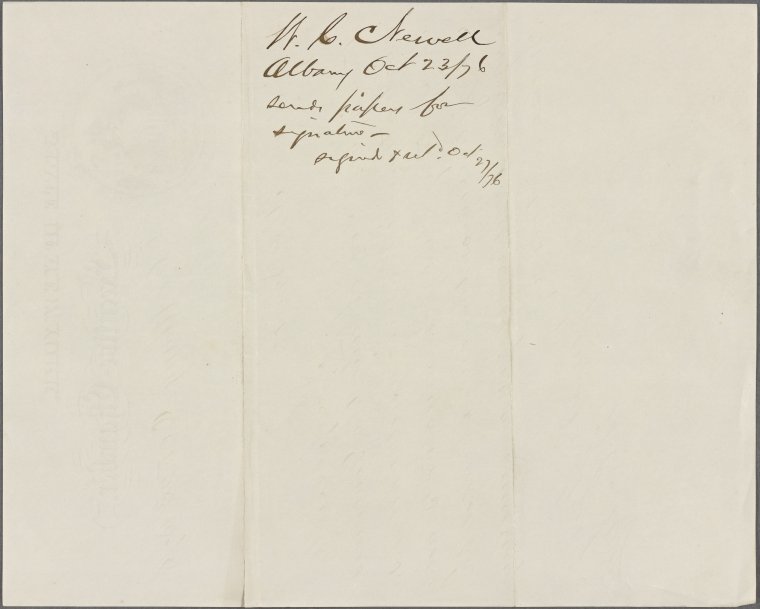 W. C. Newell
Albany Oct 23/76
sends papers for
signature –
signed & ret'd. Oct
27/76